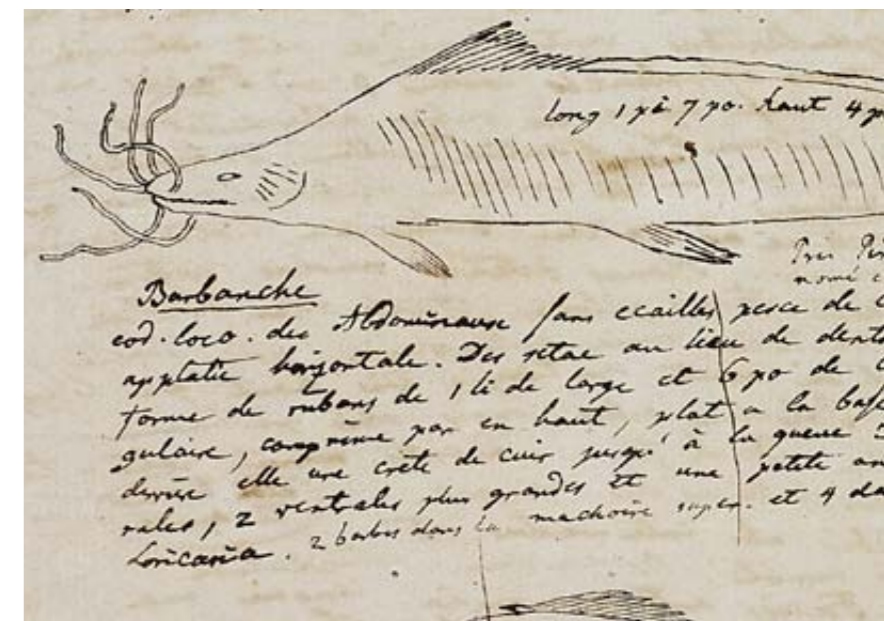 long 1 pi 7 po. haut 4 p
Pres
nomé c
Barbanche
cod. loco. des Abdominaux sans ecailles pesce de
applatie horizontale. Des setae au lieu de dents
forme de rubans de 1 li de large et 6 po de
gulaire, comprimé par en haut, plat a la base
derriere elle une crête de cuir jusqu'à la queue
rales, 2 ventrales plus grandes et une petite an
Loricaria. 2 barbes dans la machoire super. et 4 da